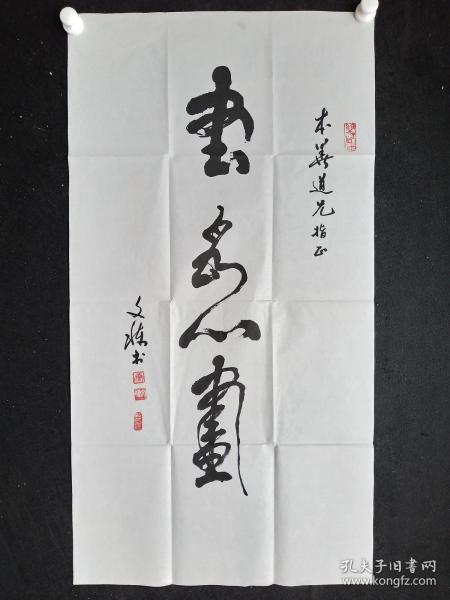 本善道兄指正
書為心畫
文 书
孔夫子旧书网
www.kongfz.com